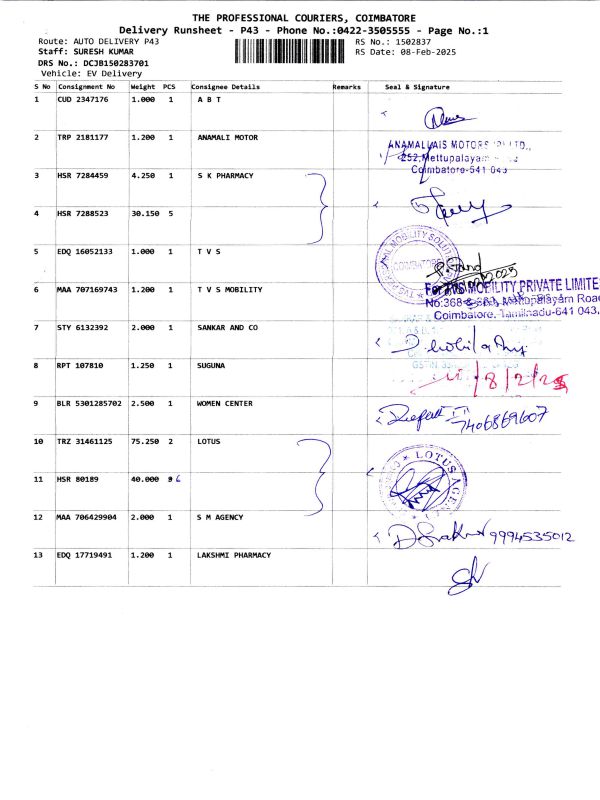 THE PROFESSIONAL COURIERS, COIMBATORE
Delivery Runsheet - P43 - Phone No.:0422-3505555 - Page No.:1
Route: AUTO DELIVERY P43 RS No.: 1502837
Staff: SURESH KUMAR RS Date: 08-Feb-2025
DRS No.: DCJB150283701
Vehicle: EV Delivery
S No Consignment No Weight PCS Consignee Details Remarks Seal & Signature
1 CUD 2347176 1.000 1 A B T
2 TRP 2181177 1.200 1 ANAMALI MOTOR
ANAMALLAIS MOTORS (P) LTD.,
252, Mettupalayam
Coimbatore-641 043
3 HSR 7284459 4.250 1 S K PHARMACY
4 HSR 7288523 30.150 5
5 EDQ 16052133 1.000 1 T V S
COIMBATORE
6 MAA 707169743 1.200 1 T V S MOBILITY
For TVS MOBILITY PRIVATE LIMITE
No:368 & Mettupalayam Road
Coimbatore, Tamilnadu-641 043.
7 STY 6132392 2.000 1 SANKAR AND CO
8 RPT 107810 1.250 1 SUGUNA
GSTIN
8/2/25
9 BLR 5301285702 2.500 1 WOMEN CENTER
7406869607
10 TRZ 31461125 75.250 2 LOTUS
LOTUS AGEN
11 HSR 80189 40.000 6
12 MAA 706429904 2.000 1 S M AGENCY
9994535012
13 EDQ 17719491 1.200 1 LAKSHMI PHARMACY